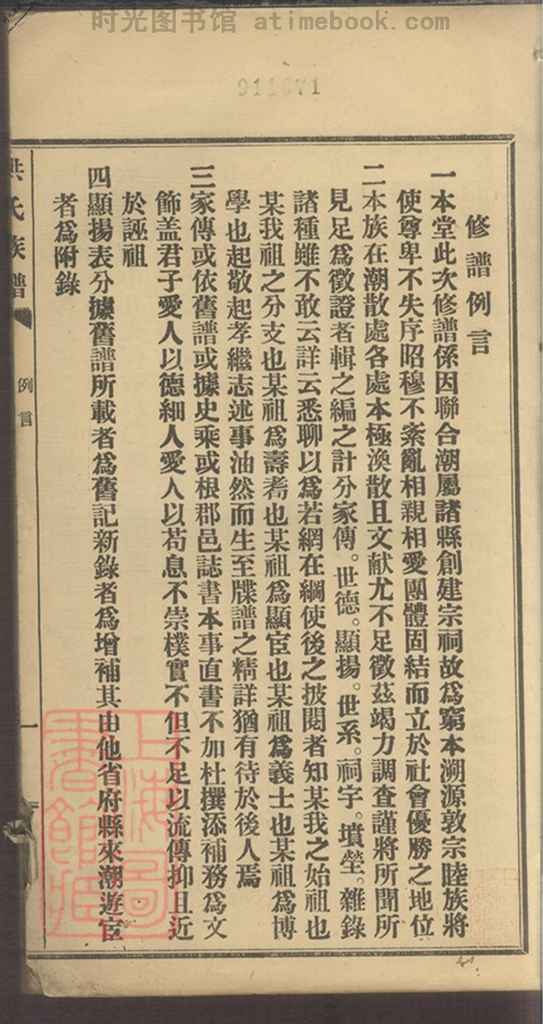 时光图书馆 atimebook.com
911671
修譜例言
一本堂此次修譜係因聯合潮屬諸縣創建宗祠故爲窮本溯源敦宗陸族將
使尊卑不失序昭穆不紊亂相親相愛團體固結而立於社會優勝之地位
二本族在潮散處各處本極渙散且文献尤不足徵茲竭力調查謹將所聞所
見足爲徵證者輯之編之計分家傳。世德。顯揚。世系。祠宇。墳塋。雜錄
諸種雖不敢云詳云悉聊以爲若網在綱使後之披閱者知某我之始祖也
某我祖之分支也某祖爲壽耇也某祖爲顯宦也某祖爲義士也某祖爲博
學也起敬起孝繼志述事油然而生至牒譜之精詳猶有待於後人焉
三家傳或依舊譜或據史乘或根郡邑誌書本事直書不加杜撰添補務爲文
飾盖君子愛人以德細人愛人以苟息不崇樸實不但不足以流傳抑且近
於誣祖
四顯揚表分據舊譜所載者爲舊記新錄者爲增補其由他省府縣來潮遊宦
者爲附錄
洪氏族譜
例言
一
上海圖書館藏